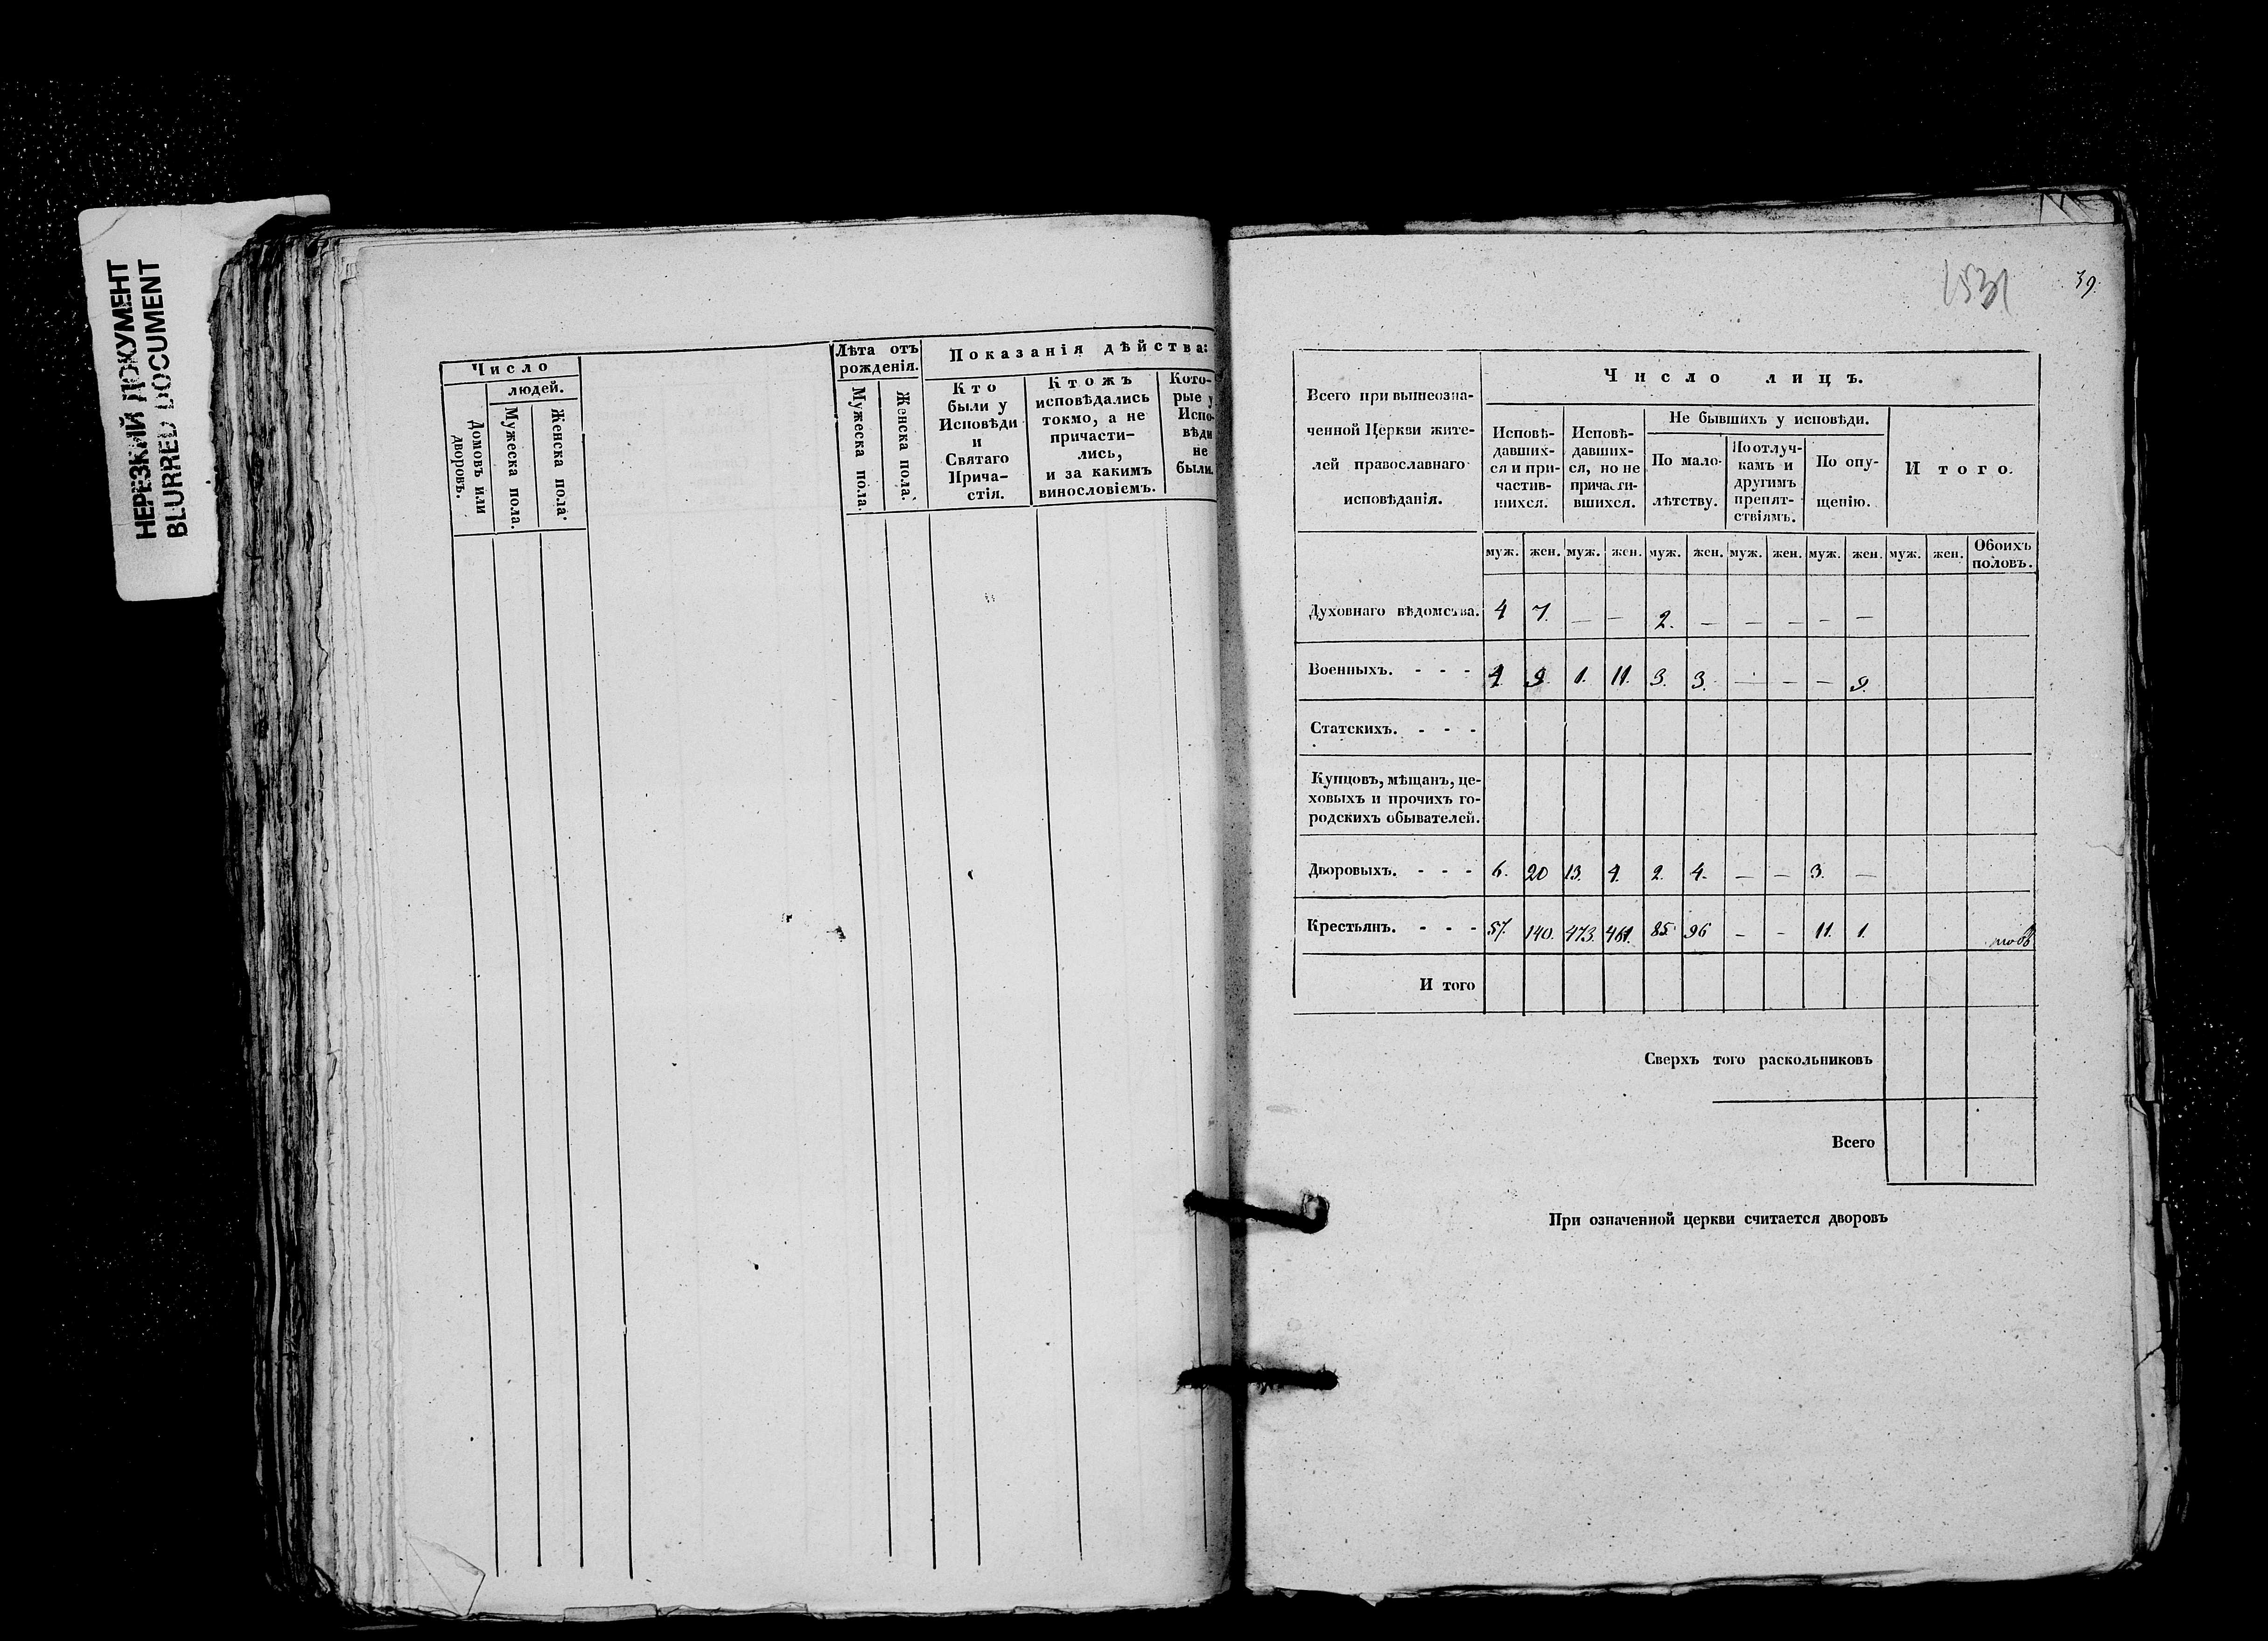 НЕРЕЗКИЙ ДОКУМЕНТ
BLURRED DOCUMENT
Число
людей.
Домовъ или дворовъ.
Мужеска пола.
Женска пола.
Лѣта отъ рожденія.
Мужеска пола.
Женска пола.
Показанія дѣйства:
Кто
были у
Исповѣди
и
Святаго
Прича-
стія.
Ктожъ
исповѣдались
токмо, а не
причасти-
лись,
и за какимъ
винословіемъ.
Кото-
рые у
Испо-
вѣди
не
были.
39.
Всего при вышеозна-
ченной Церкви жите-
лей православнаго
исповѣданія.
Число лицъ.
Исповѣ-
давших-
ся и при-
частив-
шихся.
Исповѣ-
давших-
ся, но не
причасти-
вшихся.
Не бывшихъ у исповѣди.
По мало-
лѣтству.
По отлуч-
камъ и
другимъ
препят-
ствіямъ.
По опу-
щенію.
Итого.
муж. жен. муж. жен. муж. жен. муж. жен. муж. жен. муж. жен. Обоихъ половъ.
Духовнаго вѣдомства. 4 7. — — 2. — — — — —
Военныхъ. - - - 4. 9. 1. 11. 3. 3. — — — 9.
Статскихъ. - - -
Купцовъ, мѣщанъ, це-
ховыхъ и прочихъ го-
родскихъ обывателей.
Дворовыхъ. - - - 6. 20 13. 4. 2. 4. — — 3. —
Крестьянъ. - - - 57. 140. 473. 461. 85. 96 — — 11. 1.
И того
Сверхъ того раскольниковъ
Всего
При означенной церкви считается дворовъ